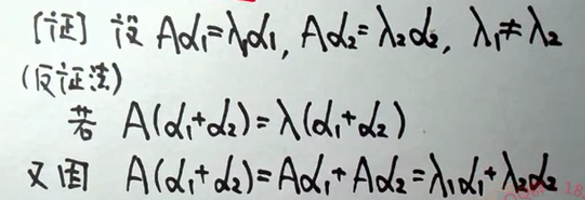 [证] 设 Aα₁=λ₁α₁, Aα₂=λ₂α₂, λ₁≠λ₂
(反证法)
若 A(α₁+α₂)=λ(α₁+α₂)
又因 A(α₁+α₂)=Aα₁+Aα₂=λ₁α₁+λ₂α₂